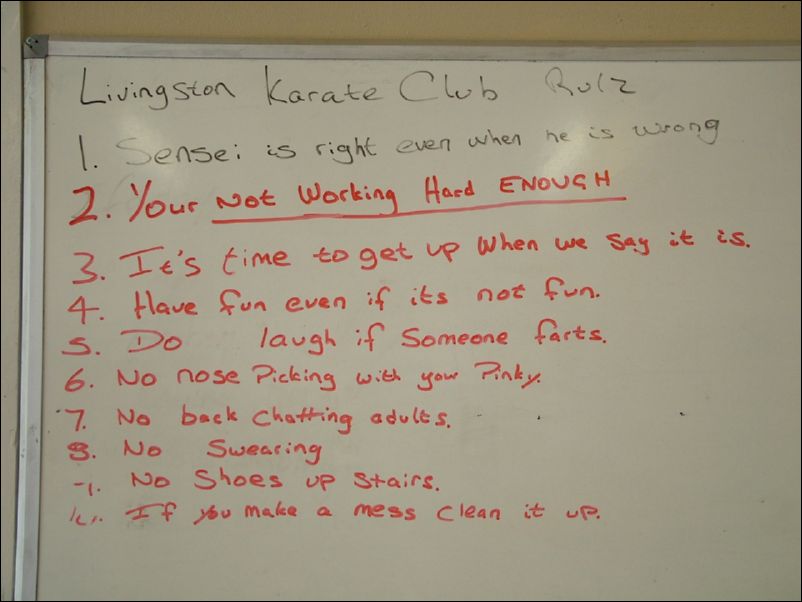 Livingston Karate Club Rulz
1. Sensei is right even when he is wrong
2. Your Not Working Hard ENOUGH
3. It's time to get up when we say it is.
4. Have fun even if its not fun.
5. Do laugh if someone farts.
6. No nose Picking with your Pinky.
7. No back chatting adults.
8. No Swearing
No Shoes up stairs.
If you make a mess clean it up.